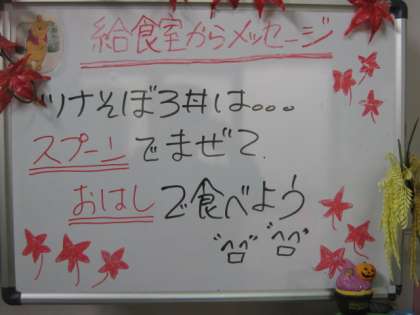 給食室からメッセージ
ツナそぼろ丼は。。。
スプーンでまぜて
おはしで食べよう